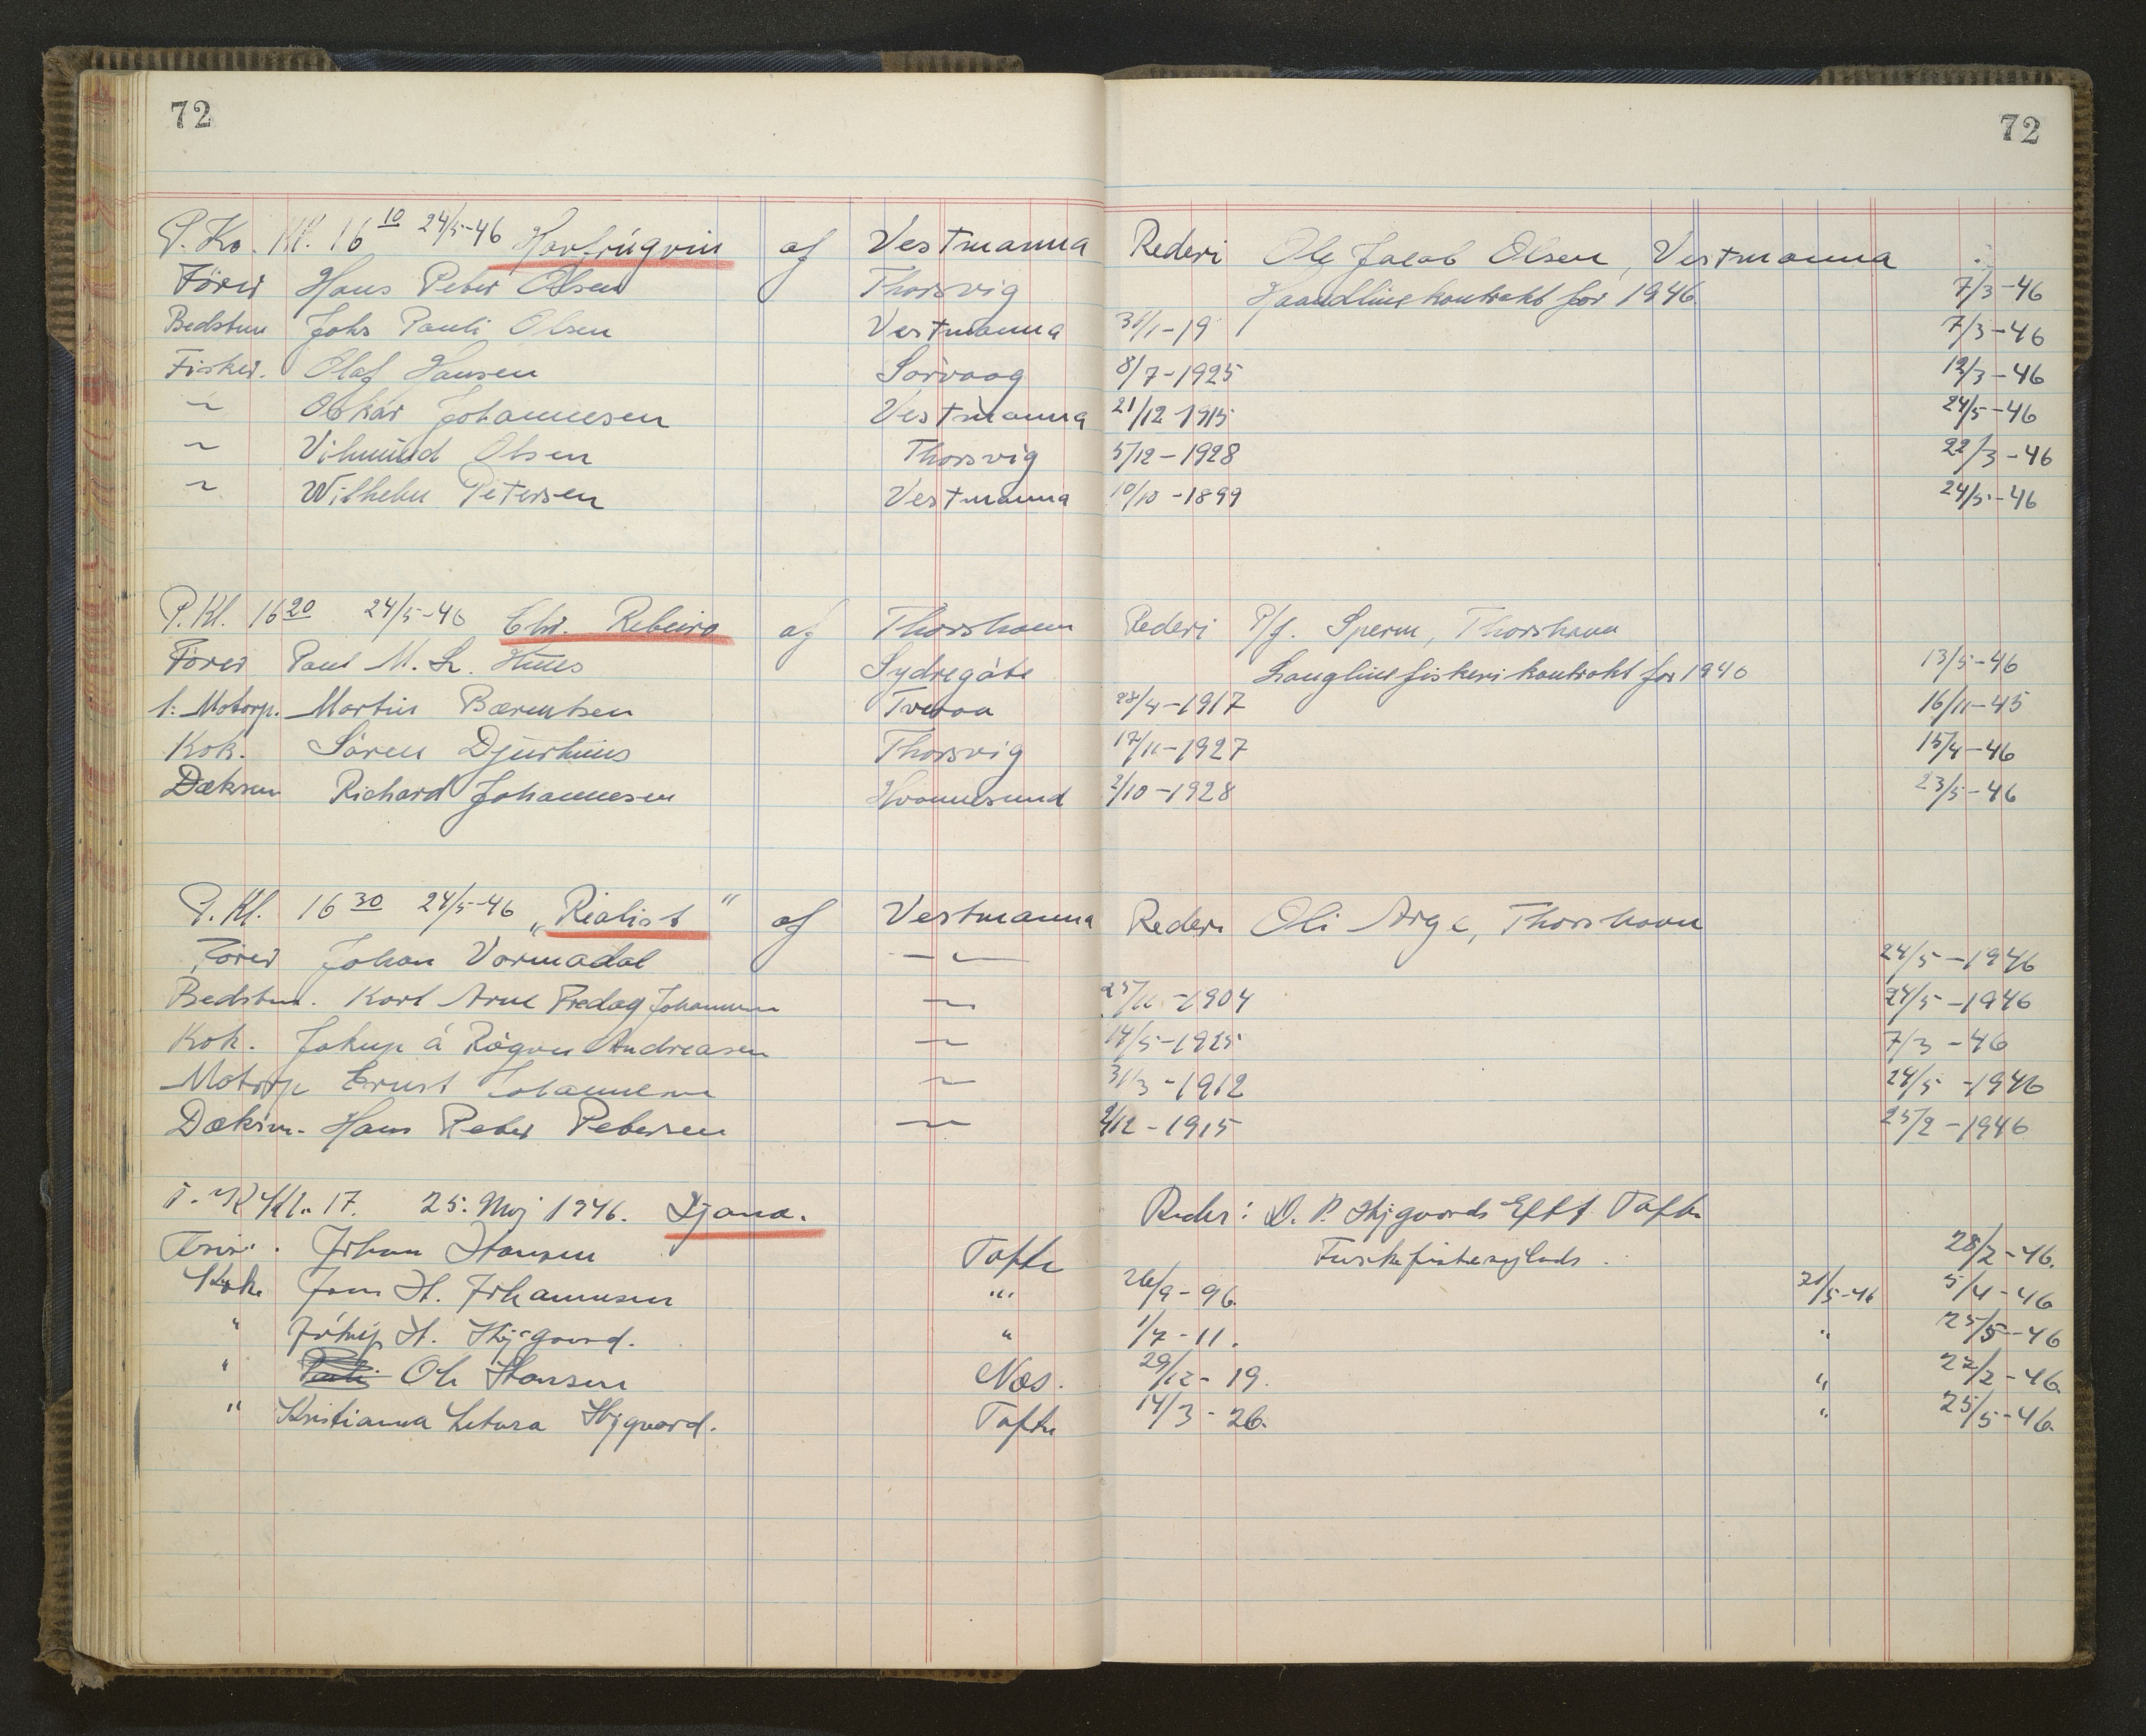 72
72
P. Ko. Kl. 16 10 24/5-46 Havfrúgvin af Vestmanna Rederi Ole Jacob Olsen, Vestmanna
Förer Hans Peter Olsen Thorsvig Haandlinekontrakt for 1946. 7/3-46
Bedstm Johs Pauli Olsen Vestmanna 31/1-19 7/3-46
Fisker. Olaf Hansen Sörvaag 8/7-1925 12/3-46
~ Oskar Johannesen Vestmanna 21/12 1915 24/5-46
~ Vilmund Olsen Thorsvig 5/12-1928 22/3-46
~ Wilhelm Petersen Vestmanna 10/10-1899 24/5-46
P. Kl. 16 20 24/5-46 Chr. af Thorshavn Rederi P/f. Sperm, Thorshavn
Förer Paul M. Sydregöte Langlinefiskerikontrakt for 1946 13/5-46
1. Motorp. Martin Bærentsen Tveraa 28/4-1917 16/11-45
Kok. Sören Djurhuus Thorsvig 17/11-1927 15/4-46
Dæksm Richard Johannesen Hvannesund 2/10-1928 23/5-46
P. Kl. 16 30 24/5-46 „Rialist" af Vestmanna Rederi Oli Arge, Thorshavn
Förer Johan Vormadal —~— 24/5-1946
Bedstm. Karl Arne Johannesen ~ 25/11-1904 24/5-1946
Kok. Jakup á Rógvu Andreasen ~ 14/5-1925 7/3-46
Motorp Ernst Johannesen ~ 31/3-1912 24/5-1946
Dæksm. Hans Peter Petersen ~ 2/12-1915 25/2-1946
Kl. 17. 25. Maj 1946. Djana. Reder: D. P. Højgaards Eftf Tofte
Förer. Johan Hansen Tofte 28/2-46.
Kok. Jens H. Johannesen " 26/9-96. 21/5-46 5/4-46
" Jókup H. Højgaard. " 1/7-11. " 25/5-46
" Ole Hansen Næs. 29/12-19. " 22/2-46.
" Kristianna Højgaard. Tofte 14/3-26. " 25/5-46.